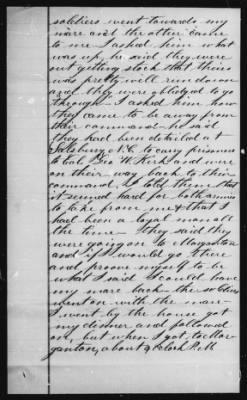 soldiers went towards my
mare and the other came
to me I asked him what
was up, he said they were
out getting stock that theirs
was pretty well run down
and they were obliged to go
through - I asked him how
they came to be away from
their command - he said
they had been detailed at
Salsbury N.C. to carry prisoners
to Col. Geo W. Kirk and were
on their way back to their
command, I told them that
it seemed hard for both armies
to take from me & that I
had been a loyal man all
the time - They said they
were going on to Morganton
and if I would go there
and proove myself to be
what I said I could have
my mare back - the soldiers
went on with the mare -
I went by the house got
my dinner and followed
on, but when I got, to Mor-
ganton, about 4 o'clock P.M.